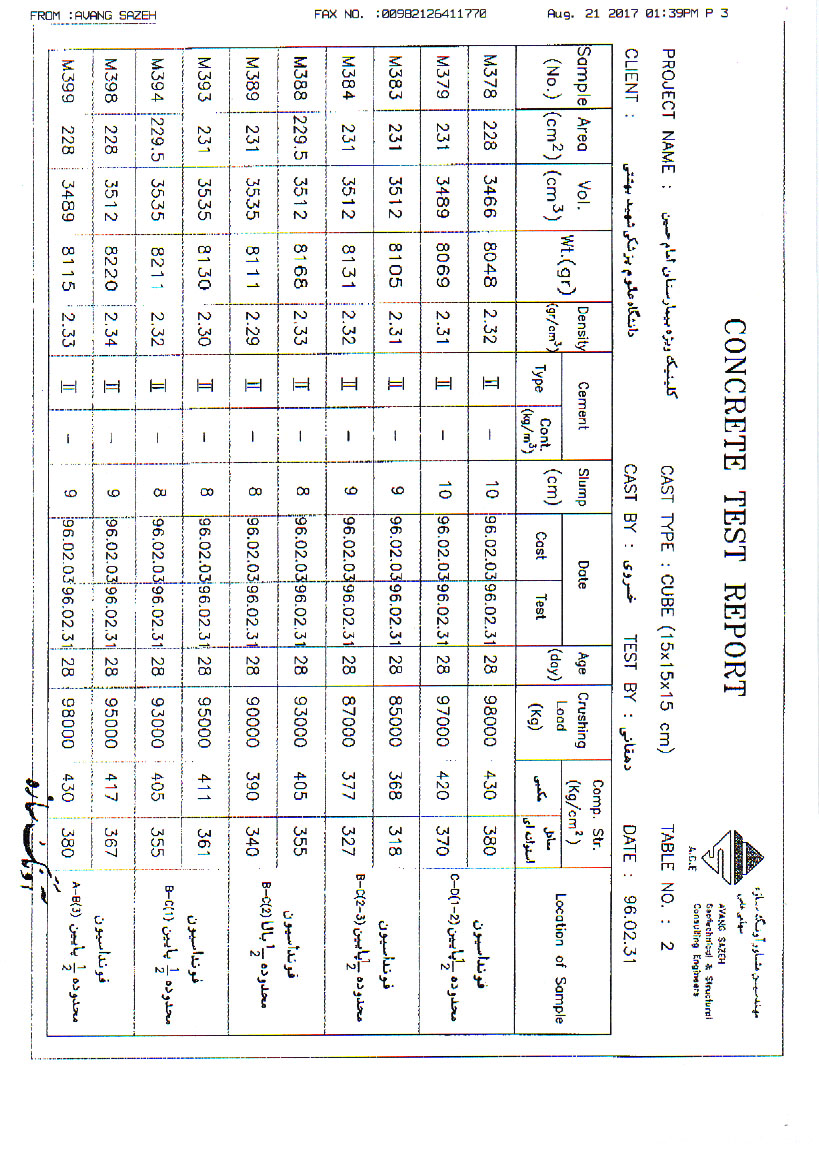 FROM :AVANG SAZEH FAX NO. :00982126411770 Aug. 21 2017 01:39PM P 3
مهندسین مشاور آونگ سازه
سهامی خاص
AVANG SAZEH
Geotechnical & Structural
Consulting Engineers
A.G.E
CONCRETE TEST REPORT
PROJECT NAME : کلینیک ویژه بیمارستان امام حسین CAST TYPE : CUBE (15x15x15 cm) TABLE NO. : 2
CLIENT : دانشگاه علوم پزشکی شهید بهشتی CAST BY : خسروی TEST BY : دهقانی DATE : 96.02.31
Sample (No.) Area (cm²) Vol. (cm³) Wt.(gr) Density (gr/cm³) Cement Type Cont. (kg/m³) Slump (cm) Date Cast Test Age (day) Crushing Load (Kg) Comp. Str. (Kg/cm²) مکعبی معادل استوانه ای Location of Sample
M378 228 3466 8048 2.32 II – 10 96.02.03 96.02.31 28 98000 430 380 فونداسیون
M379 231 3489 8069 2.31 II – 10 96.02.03 96.02.31 28 97000 420 370 محدوده 1/2 پایین C–D(1–2)
M383 231 3512 8105 2.31 II – 9 96.02.03 96.02.31 28 85000 368 318 فونداسیون
M384 231 3512 8131 2.32 II – 9 96.02.03 96.02.31 28 87000 377 327 محدوده 1/2 پایین B–C(2–3)
M388 229.5 3512 8168 2.33 II – 8 96.02.03 96.02.31 28 93000 405 355 فونداسیون
M389 231 3535 8111 2.29 II – 8 96.02.03 96.02.31 28 90000 390 340 محدوده 1/2 بالا B–C(2)
M393 231 3535 8130 2.30 II – 8 96.02.03 96.02.31 28 95000 411 361 فونداسیون
M394 229.5 3535 8211 2.32 II – 8 96.02.03 96.02.31 28 93000 405 355 محدوده 1/2 پایین B–C(1)
M398 228 3512 8220 2.34 II – 9 96.02.03 96.02.31 28 95000 417 367 فونداسیون
M399 228 3489 8115 2.33 II – 9 96.02.03 96.02.31 28 98000 430 380 محدوده 1/2 پایین A–B(3)